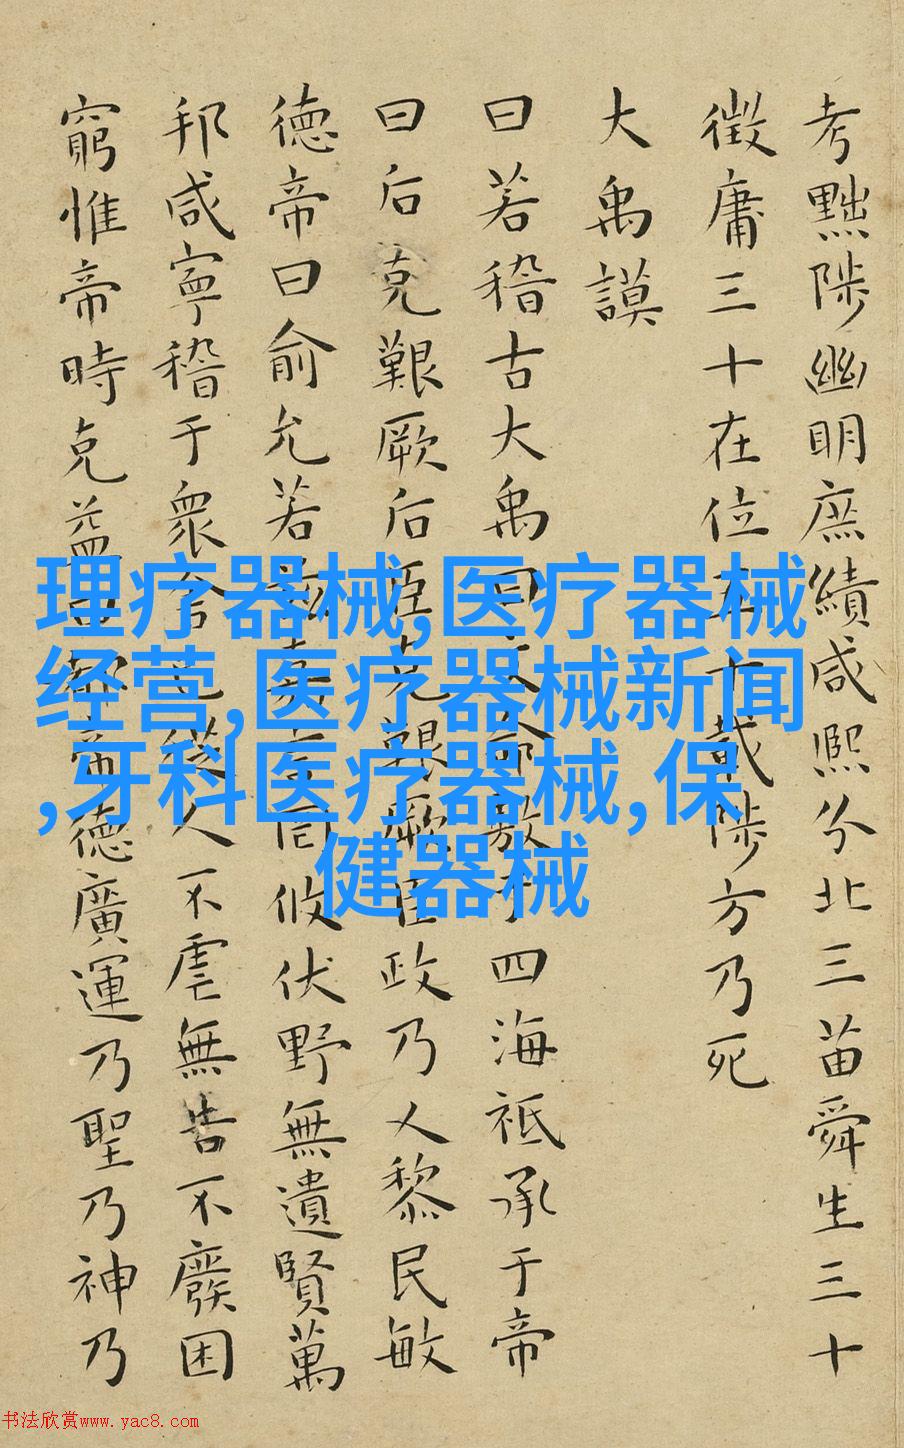 考黜陟幽明庶績咸熙分北三苗舜生三十
徵庸三十在位五十載陟方乃死
大禹謨
曰若稽古大禹曰文命敷于四海祗承于帝
曰后克艱厥后臣克艱厥臣政乃乂黎民敏
德帝曰俞允若茲嘉言罔攸伏野無遺賢萬
邦咸寧稽于衆舍己從人不虐無告不廢困
窮惟帝時克益曰都帝德廣運乃聖乃神乃
理疗器械,医疗器械
经营,医疗器械新闻
,牙科医疗器械,保
健器械
书法欣赏www.yac8.com